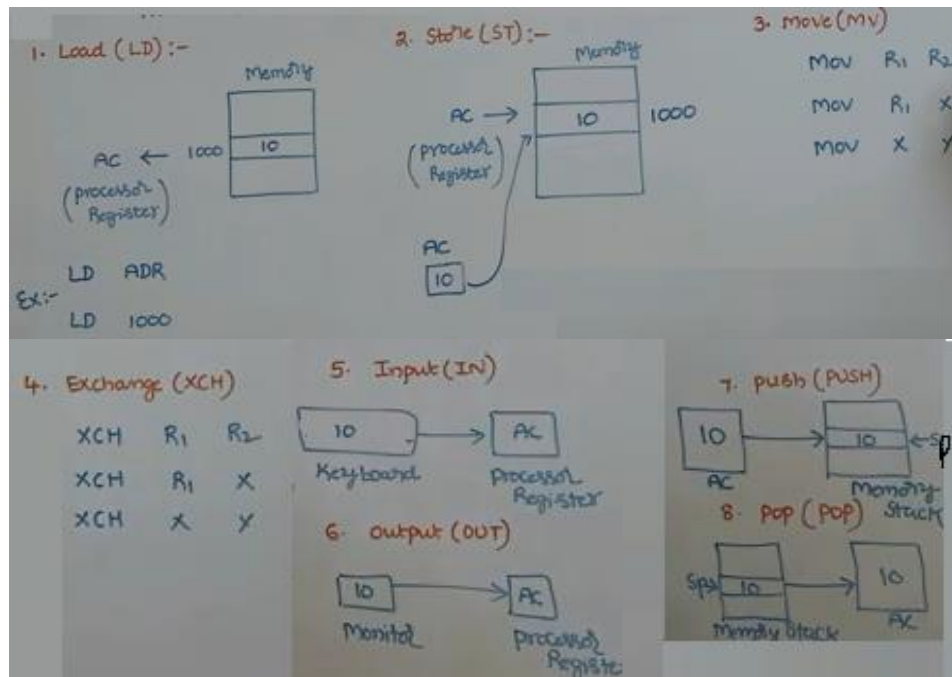 1. Load (LD):-
Memory
1000 10
AC ←
(processor
Register)
Ex:- LD ADR
LD 1000
2. Store (ST):-
Memory
AC → 10 1000
(processor
Register)
AC
10
3. Move (MV)
Mov R1 R2
Mov R1 X
Mov X Y
4. Exchange (XCH)
XCH R1 R2
XCH R1 X
XCH X Y
5. Input (IN)
10 AC
Keyboard processor
Register
6. output (OUT)
10 AC
Monitor processor
Registe
7. push (PUSH)
10 10 ←Sp
AC Memory
Stack
8. pop (POP)
Sp→ 10 10
Memory Stack AC